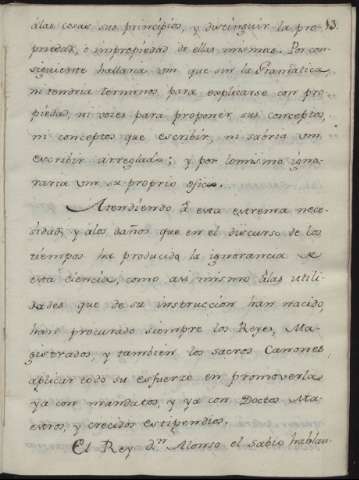 13.
âlas cosas sus principios, y distinguir la pro-
piedad, ô impropiedad de ellas mismas. Por con-
siguiente hallaria vm que sin la Gramatica,
ni tendria terminos para explicarse con pro-
piedad, ni voces para proponer sus conceptos,
ni conceptos que escribir, ni sabria vm
escribir arreglada; y por lo mismo igno-
raria vm su proprio oficio.
Atendiendo â esta extrema nece-
sidad, y alos daños que en el discurso de los
tiempos ha producido la ignorancia de
esta ciencia, como asi mismo âlas utili-
dades que de su instruccion han nacido
han procurado siempre los Reyes, Ma-
gistrados, y tambien los sacros Canones,
aplicar todo su esfuerzo en promoverla
ya con mandatos, y ya con Doctos Ma-
estros, y crecidos estipendios.
El Rey dⁿ Alonso el sabio hablan-